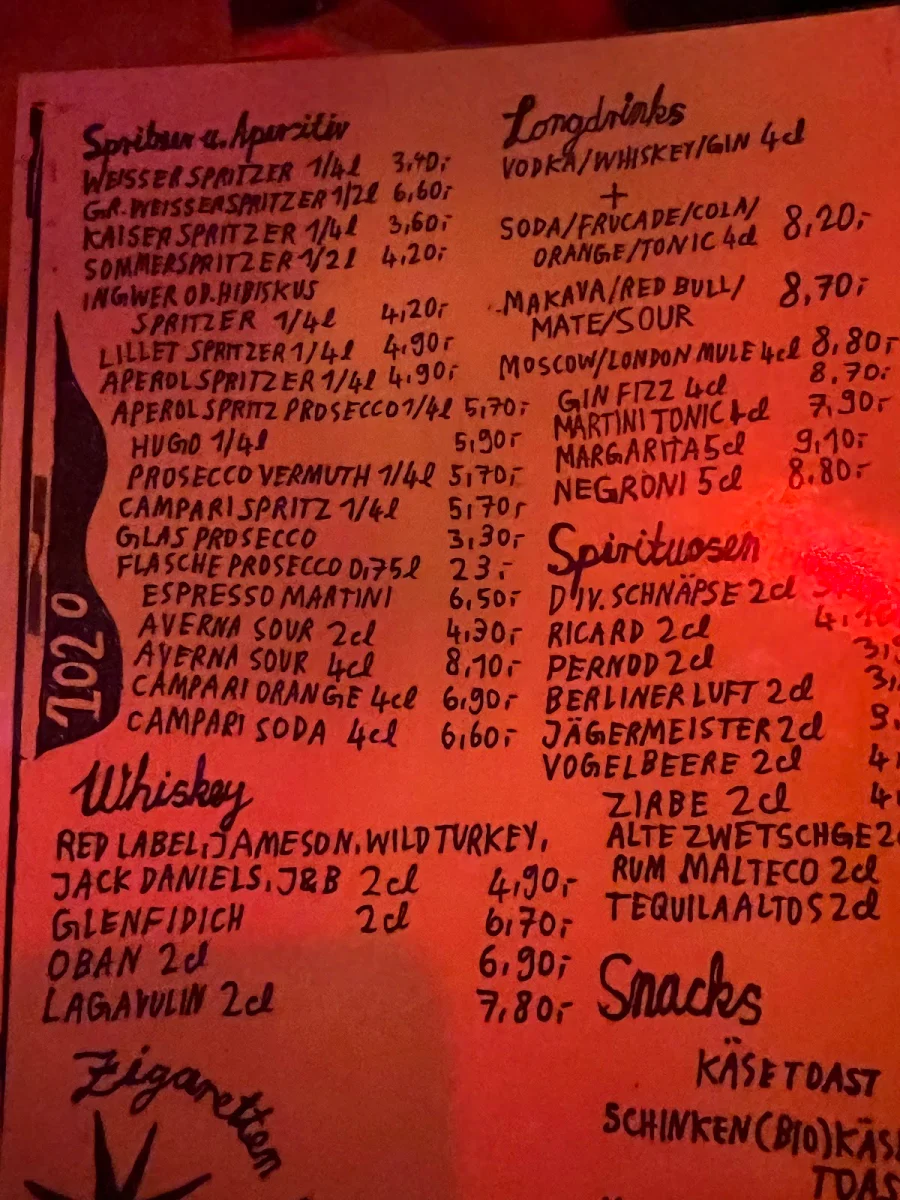 Spritzer u. Aperitiv
WEISSER SPRITZER 1/4l 3,40,-
GR. WEISSER SPRITZER 1/2l 6,60,-
KAISER SPRITZER 1/4l 3,60,-
SOMMERSPRITZER 1/2l 4,20,-
INGWER OD. HIBISKUS
SPRITZER 1/4l 4,20,-
LILLET SPRITZER 1/4l 4,90,-
APEROL SPRITZER 1/4l 4,90,-
APEROL SPRITZ PROSECCO 1/4l 5,70,-
HUGO 1/4l 5,90,-
PROSECCO VERMUTH 1/4l 5,70,-
CAMPARI SPRITZ 1/4l 5,70,-
GLAS PROSECCO 3,30,-
FLASCHE PROSECCO 0,75l 23,-
ESPRESSO MARTINI 6,50,-
AVERNA SOUR 2cl 4,30,-
AVERNA SOUR 4cl 8,10,-
CAMPARI ORANGE 4cl 6,90,-
CAMPARI SODA 4cl 6,60,-
1020
Whiskey
RED LABEL, JAMESON, WILD TURKEY,
JACK DANIELS, J&B 2cl 4,90,-
GLENFIDICH 2cl 6,70,-
OBAN 2cl 6,90,-
LAGAVULIN 2cl 7,80,-
Zigaretten
Longdrinks
VODKA/WHISKEY/GIN 4cl
+
SODA/FRUCADE/COLA/
ORANGE/TONIC 4cl 8,20,-
MAKAVA/RED BULL/
MATE/SOUR 8,70,-
MOSCOW/LONDON MULE 4cl 8,80,-
GIN FIZZ 4cl 8,70,-
MARTINI TONIC 4cl 7,90,-
MARGARITA 5cl 9,10,-
NEGRONI 5cl 8,80,-
Spirituosen
DIV. SCHNÄPSE 2cl
RICARD 2cl
PERNOD 2cl
BERLINER LUFT 2cl
JÄGERMEISTER 2cl
VOGELBEERE 2cl
ZIRBE 2cl
ALTE ZWETSCHGE
RUM MALTECO 2cl
TEQUILA ALTOS 2cl
Snacks
KÄSETOAST
SCHINKEN (BIO) KÄS
TOAS